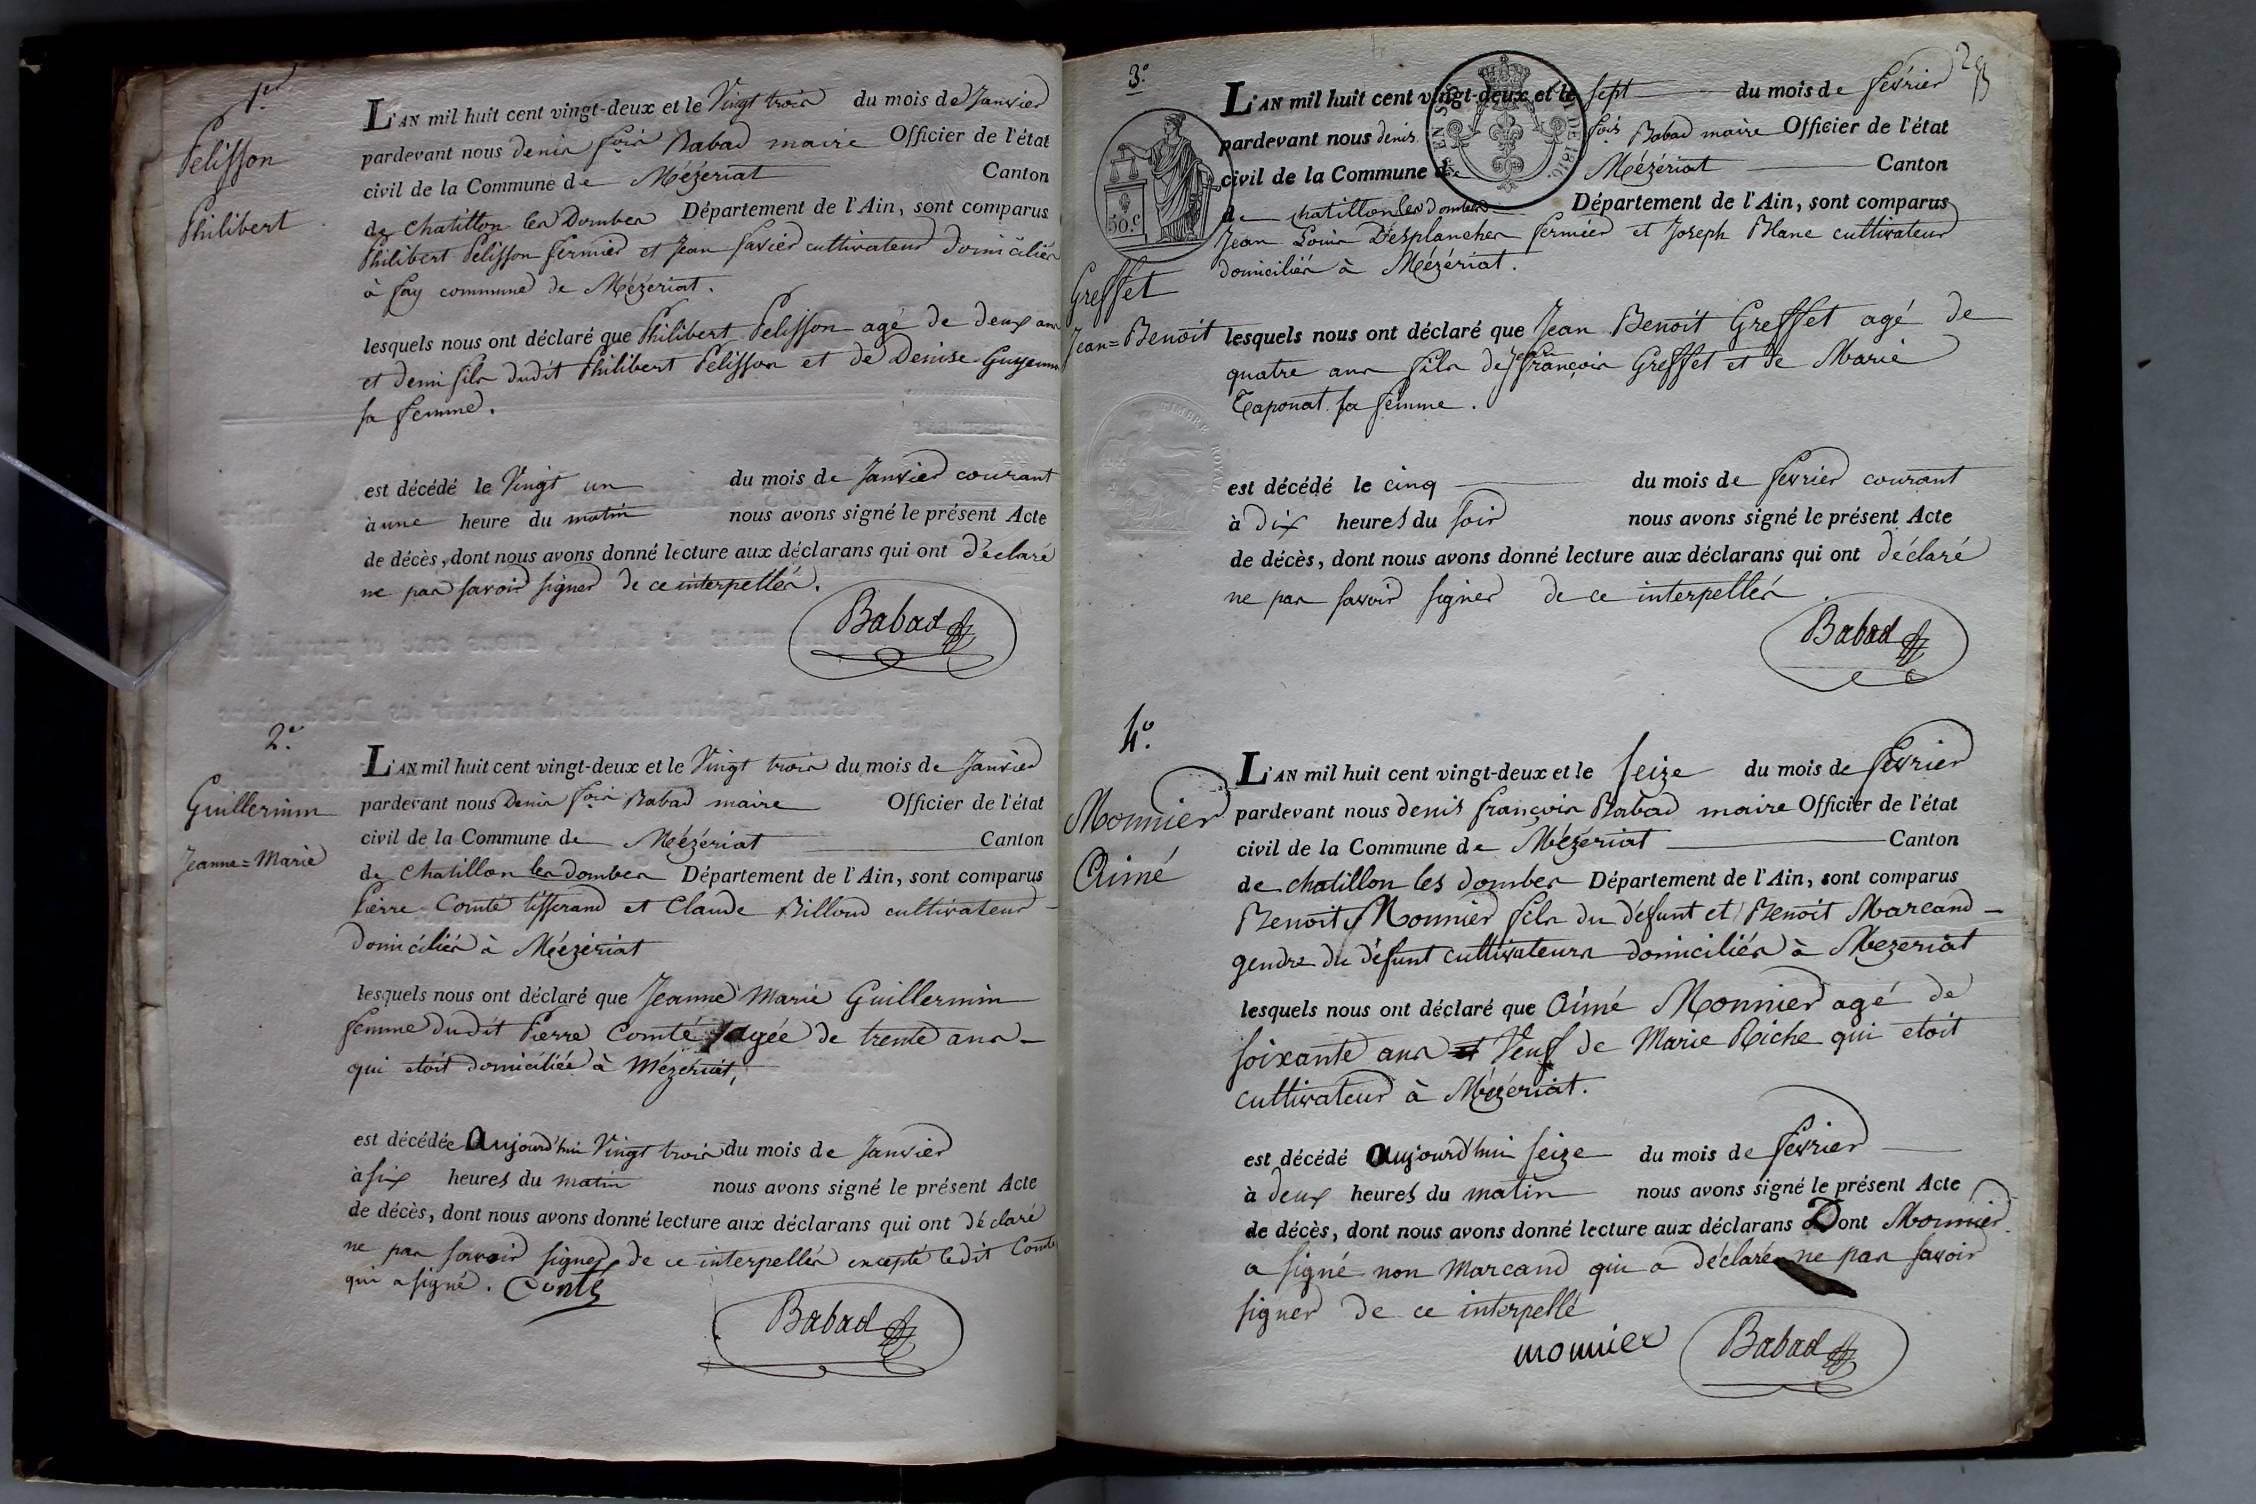 1.er
Pelisson
Philibert
L'AN mil huit cent vingt-deux et le Vingt trois du mois de Janvier
pardevant nous denis fois Babad maire Officier de l'état
civil de la Commune de Mézériat Canton
de chatillon les Dombes Département de l'Ain, sont comparus
Philibert Pelisson fermier et Jean favier cultivateur domiciliés
à fay commune de Mézériat.
lesquels nous ont déclaré que Philibert Pelisson agé de deux ans
et demi fils dudit Philibert Pelisson et de Denise Guyenne
sa femme.
est décédé le Vingt un du mois de Janvier courant
à une heure du matin nous avons signé le présent Acte
de décès, dont nous avons donné lecture aux déclarans qui ont déclaré
ne pas savoir signer de ce interpellés.
Babad
2.e
Guillermin
Jeanne=Marie
L'AN mil huit cent vingt-deux et le Vingt trois du mois de Janvier
pardevant nous Denis fois Babad maire Officier de l'état
civil de la Commune de Mézériat Canton
de chatillon les dombes Département de l'Ain, sont comparus
Pierre Comte tisserand et Claude Billoud cultivateur
domiciliés à Mézériat
lesquels nous ont déclaré que Jeanne Marie Guillermin
femme dudit Pierre Comte agée de trente ans
qui etoit domiciliée à Mézériat,
est décédée aujourd'hui Vingt trois du mois de Janvier
à six heures du matin nous avons signé le présent Acte
de décès, dont nous avons donné lecture aux déclarans qui ont déclaré
ne pas savoir signer de ce interpellés excepté ledit Comte
qui a signé. Comte
Babad
3.o
50.C
DE 1816.
Greffet
Jean=Benoit
L'AN mil huit cent vingt-deux et le sept du mois de février
pardevant nous denis fois Babad maire Officier de l'état
civil de la Commune de Mézériat Canton
de chatillon les dombes Département de l'Ain, sont comparus
Jean Louis Desplanches fermier et Joseph Blanc cultivateur
domiciliés à Mézériat.
lesquels nous ont déclaré que Jean Benoit Greffet agé de
quatre ans fils de Jean françois Greffet et de Marie
Taponat sa femme.
TIMBRE ROYAL
est décédé le cinq du mois de fevrier courant
à dix heures du soir nous avons signé le présent Acte
de décès, dont nous avons donné lecture aux déclarans qui ont déclaré
ne pas savoir signer de ce interpellés
Babad
4.o
Monnier
Aimé
L'AN mil huit cent vingt-deux et le seize du mois de février
pardevant nous denis françois Babad maire Officier de l'état
civil de la Commune de Mézériat Canton
de chatillon les dombes Département de l'Ain, sont comparus
Benoit Monnier fils du défunt et Benoit Marcand
gendre du défunt cultivateurs domiciliés à Mezeriat
lesquels nous ont déclaré que Aimé Monnier agé de
soixante ans Veuf de Marie Riche qui etoit
cultivateur à Mézériat.
est décédé aujourd'hui seize du mois de février
à deux heures du matin nous avons signé le présent Acte
de décès, dont nous avons donné lecture aux déclarans Dont Monnier
a signé non Marcand qui a déclaré ne pas savoir
signer de ce interpellé
monnier Babad